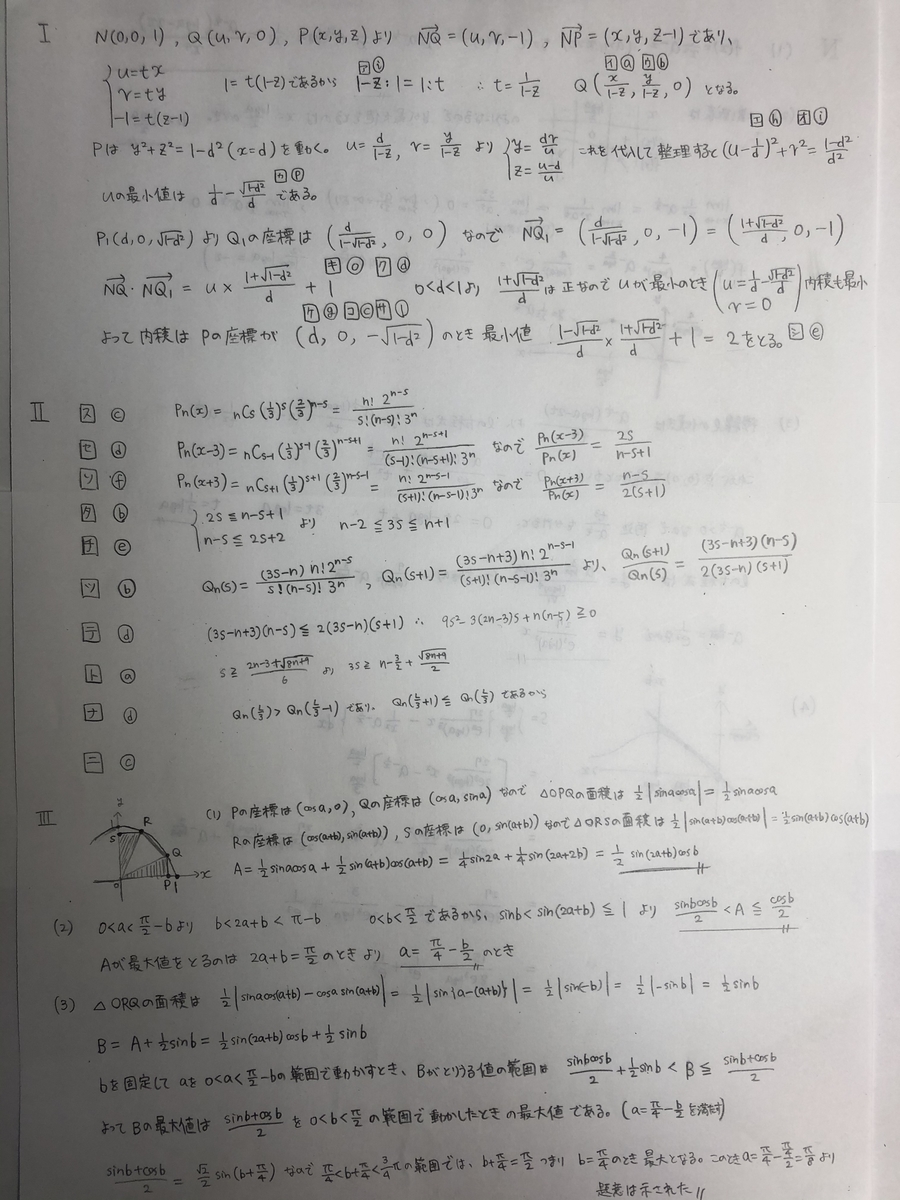 I N(0,0,1), Q(u,v,0), P(x,y,z)より NQ→=(u,v,-1), NP→=(x,y,z-1)であり、
ア ⓘ イ ⓐ ウ ⓑ
{ u=tx
v=ty
-1=t(z-1)
1=t(1-z)であるから 1-z:1=1:t ∴t=1/(1-z) Q(x/(1-z), y/(1-z), 0) となる。
エ ⓗ オ ⓘ
Pは y²+z²=1-d² (x=d)を動く。 u=d/(1-z), v=y/(1-z) より { y=dv/u, z=(u-d)/u これを代入して整理すると (u-1/d)²+v²=(1-d²)/d²
カ ⓟ
uの最小値は 1/d-√(1-d²)/d である。
P₁(d,0,√(1-d²))より Q₁の座標は (d/(1-√(1-d²)), 0, 0) なので NQ₁→=(d/(1-√(1-d²)), 0, -1)=((1+√(1-d²))/d, 0, -1)
キ ⓞ ク ⓓ
NQ→・NQ₁→=u×(1+√(1-d²))/d+1 0<d<1より (1+√(1-d²))/d は正なので uが最小のとき (u=1/d-√(1-d²)/d, v=0) 内積も最小
ケ ⓖ コ ⓒ サ ⓛ
よって内積は Pの座標が (d, 0, -√(1-d²)) のとき 最小値 (1-√(1-d²))/d×(1+√(1-d²))/d+1=2をとる。 シ ⓔ
II ス ⓒ Pn(x)=nCs(1/3)^s(2/3)^(n-s)=n!2^(n-s)/(s!(n-s)!3^n)
セ ⓓ Pn(x-3)=nCs-1(1/3)^(s-1)(2/3)^(n-s+1)=n!2^(n-s+1)/((s-1)!(n-s+1)!3^n) なので Pn(x-3)/Pn(x)=2s/(n-s+1)
ソ ⓕ Pn(x+3)=nCs+1(1/3)^(s+1)(2/3)^(n-s-1)=n!2^(n-s-1)/((s+1)!(n-s-1)!3^n) なので Pn(x+3)/Pn(x)=(n-s)/(2(s+1))
タ ⓑ { 2s≦n-s+1
チ ⓔ n-s≦2s+2 より n-2≦3s≦n+1
ツ ⓑ Qn(s)=(3s-n)n!2^(n-s)/(s!(n-s)!3^n), Qn(s+1)=(3s-n+3)n!2^(n-s-1)/((s+1)!(n-s-1)!3^n) より、 Qn(s+1)/Qn(s)=(3s-n+3)(n-s)/(2(3s-n)(s+1))
テ ⓓ (3s-n+3)(n-s)≦2(3s-n)(s+1) ∴ 9s²-3(2n-3)s+n(n-5)≧0
ト ⓐ s≧(2n-3+√(8n+9))/6 より 3s≧n-3/2+√(8n+9)/2
ナ ⓓ Qn(k/3)>Qn(k/3-1)であり、Qn(k/3+1)≦Qn(k/3)であるから
ニ ⓒ
III (1) Pの座標は(cosa,0), Qの座標は(cosa,sina)なので △OPQの面積は 1/2|sinacosa|=1/2sinacosa
Rの座標は(cos(a+b),sin(a+b)), Sの座標は(0,sin(a+b))なので△ORSの面積は 1/2|sin(a+b)cos(a+b)|=1/2sin(a+b)cos(a+b)
A=1/2sinacosa+1/2sin(a+b)cos(a+b)=1/4sin2a+1/4sin(2a+2b)=1/2 sin(2a+b)cosb
y
S R
Q
O P 1 x
(2) 0<a<π/2-bより b<2a+b<π-b 0<b<π/2であるから、sinb<sin(2a+b)≦1 より sinbcosb/2<A≦cosb/2
Aが最大値をとるのは 2a+b=π/2のときより a=π/4-b/2のとき
(3) △ORQの面積は 1/2|sinacos(a+b)-cosasin(a+b)|=1/2|sin{a-(a+b)}|=1/2|sin(-b)|=1/2|-sinb|=1/2sinb
B=A+1/2sinb=1/2sin(2a+b)cosb+1/2sinb
bを固定してaを0<a<π/2-bの範囲で動かすとき、Bがとりうる値の範囲は sinbcosb/2+1/2sinb<B≦(sinb+cosb)/2
よってBの最大値は (sinb+cosb)/2 を0<b<π/2の範囲で動かしたときの最大値である。(a=π/4-b/2を満たす)
(sinb+cosb)/2=√2/2 sin(b+π/4) なので π/4<b+π/4<3/4πの範囲では、b+π/4=π/2つまり b=π/4のとき最大となる。このときa=π/4-(π/4)/2=π/8より
題意は示された //